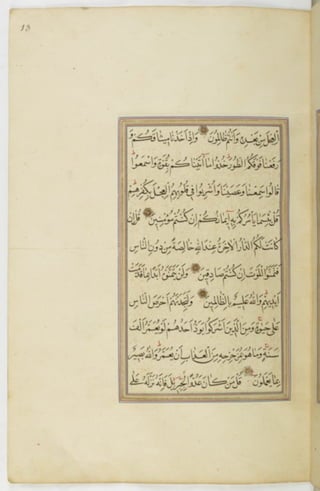 13
العجل من بعده وانتم ظالمون واذ اخذنا ميثاقكم و
رفعنا فوقكم الطور خذوا ما اتيناكم بقوة واسمعوا
قالوا سمعنا وعصينا واشربوا في قلوبهم العجل بكفرهم
قل بئسما يامركم به ايمانكم ان كنتم مؤمنين قل ان
كانت لكم الدار الاخرة عند الله خالصة من دون الناس
فتمنوا الموت ان كنتم صادقين ولن يتمنوه ابدا بما قدمت
ايديهم والله عليم بالظالمين ولتجدنهم احرص الناس
على حيوة ومن الذين اشركوا يود احدهم لو يعمر الف
سنة وما هو بمزحزحه من العذاب ان يعمر والله بصير
بما يعملون قل من كان عدوا لجبريل فانه نزله على